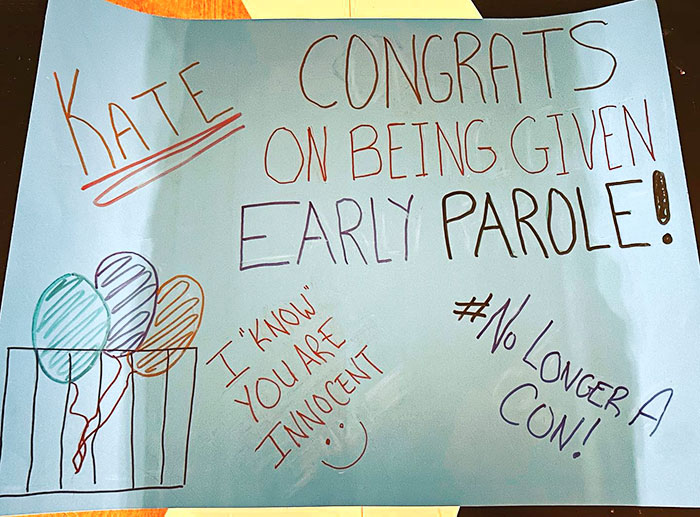 KATE
CONGRATS
ON BEING GIVEN
EARLY PAROLE!
I "KNOW"
YOU ARE
INNOCENT
#No LONGER A
CON!